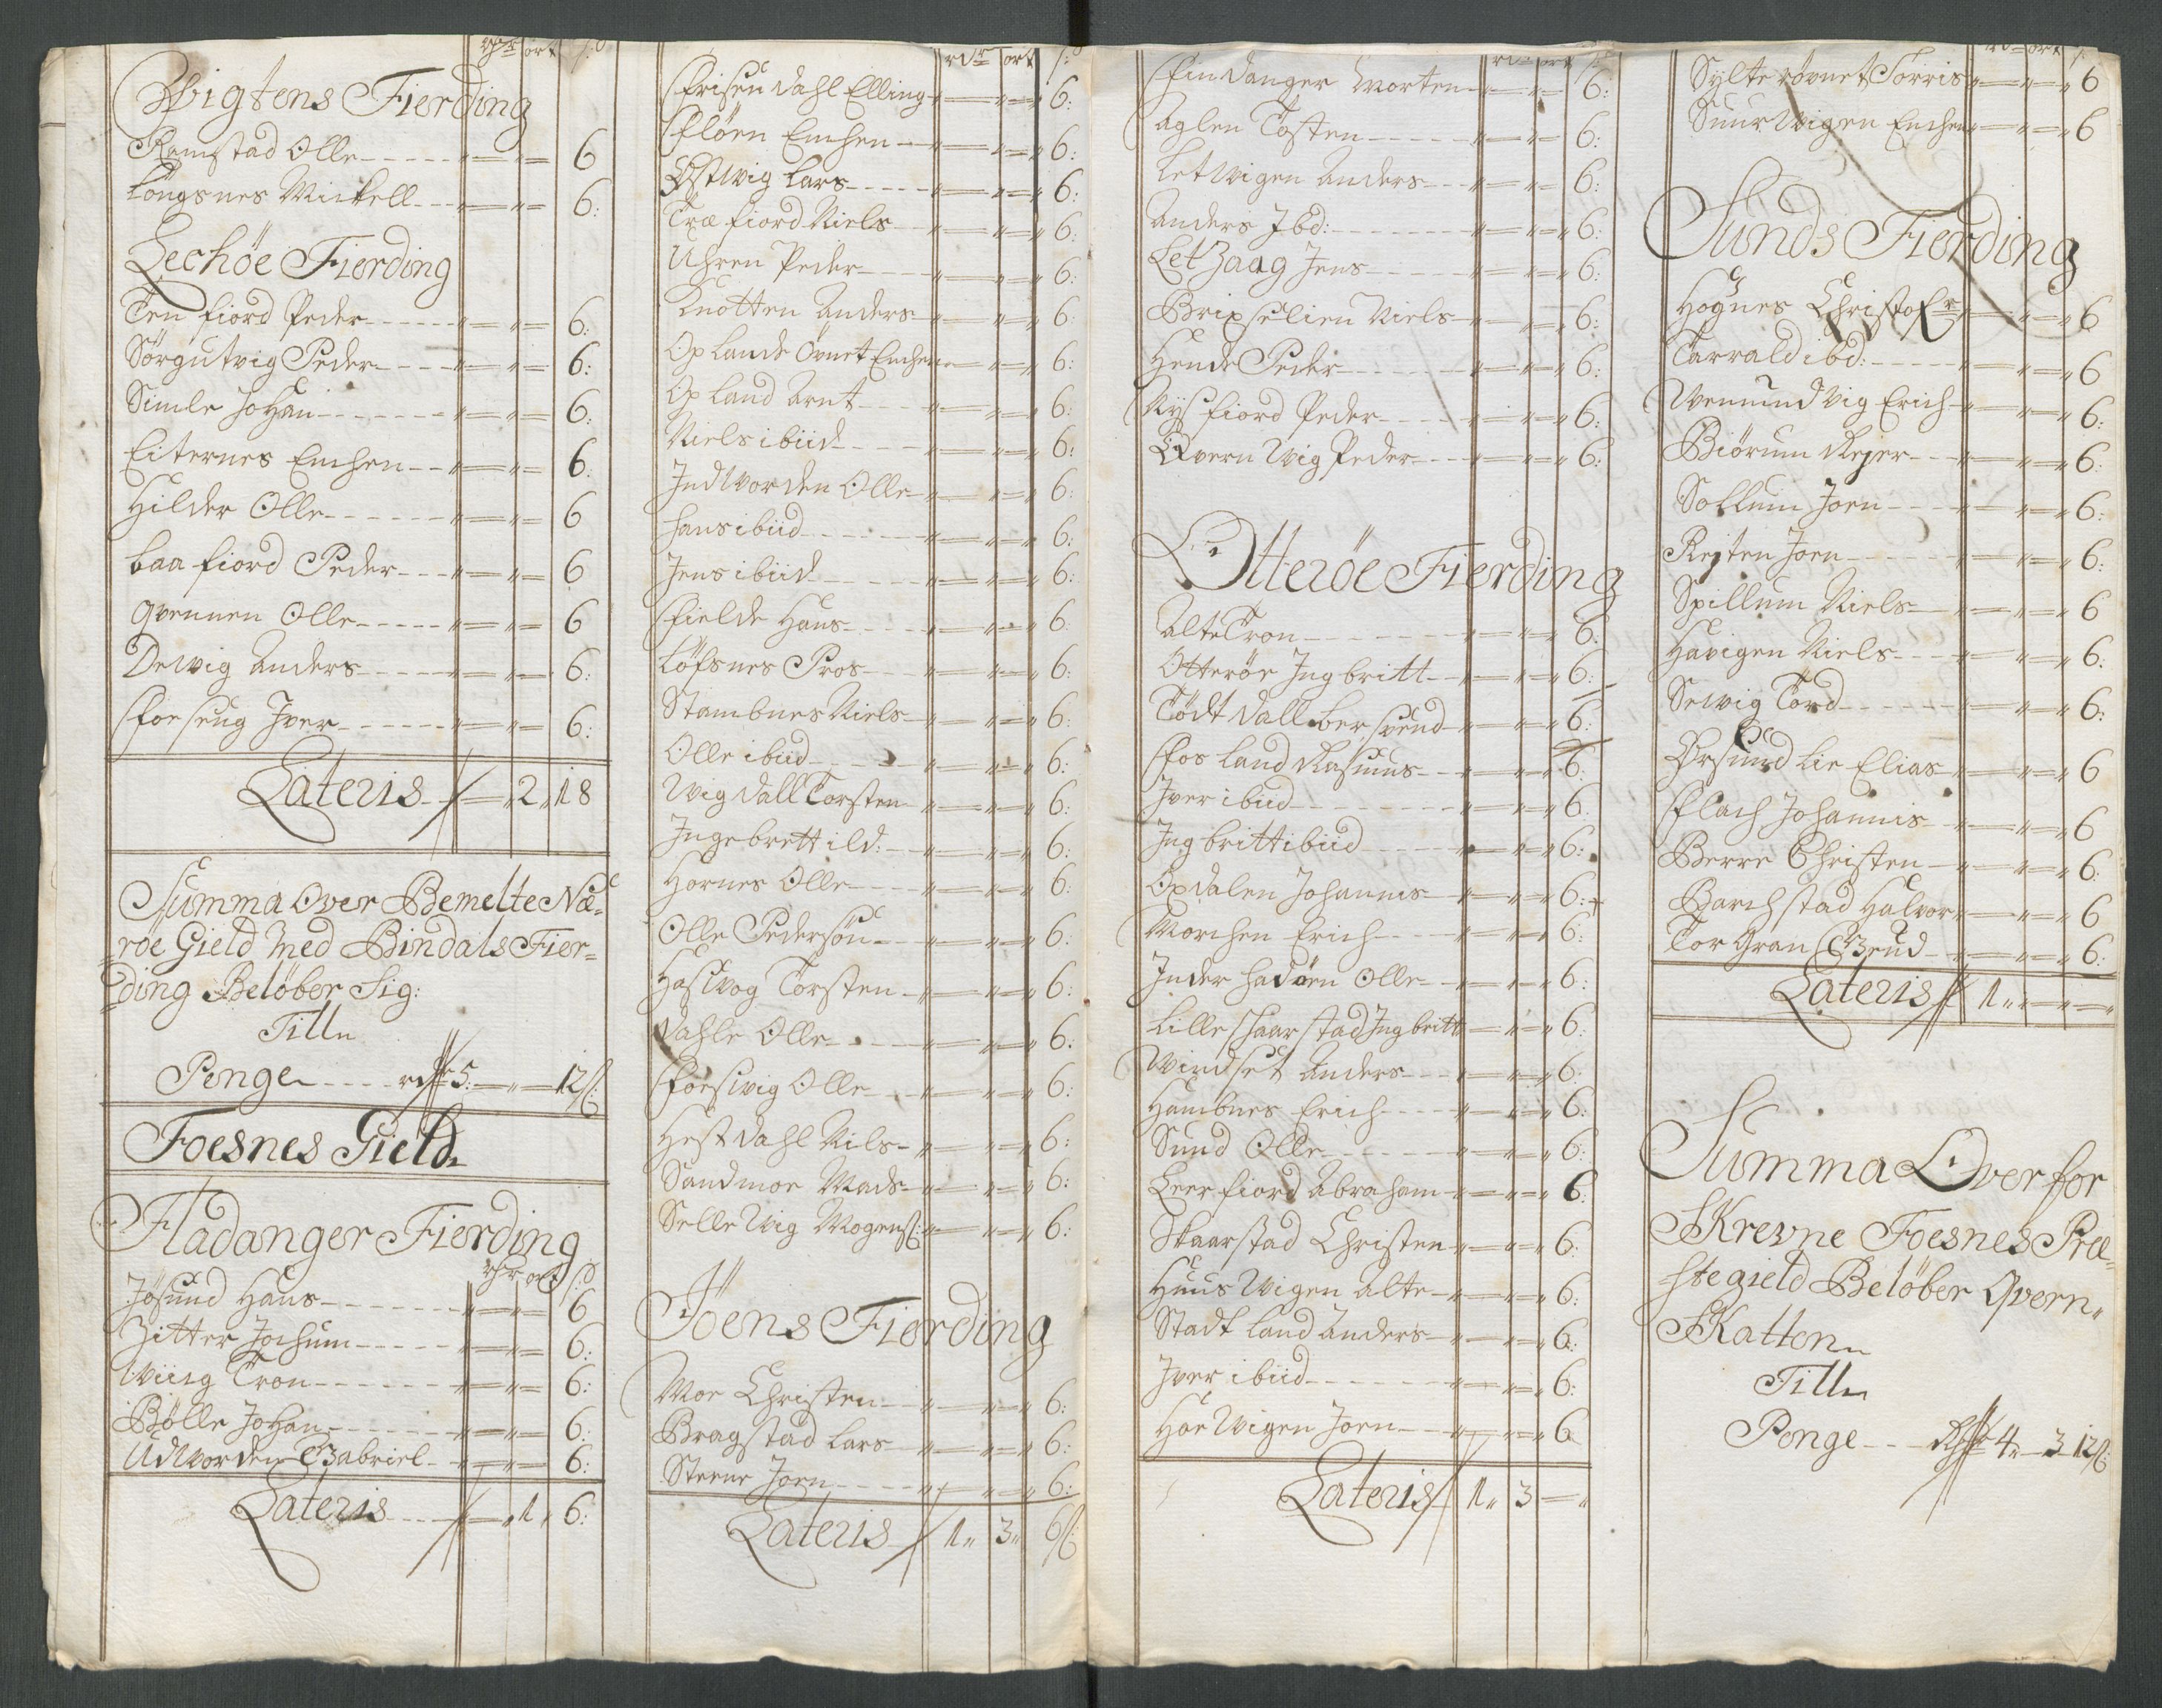 rdr ort s:
Wigtens Fierding
Ramstad Olle - - - - - 6
Longsnes Mickell - - - 6:
Lechöe Fierding
Ten fiord Peder - - - - - 6:
Sørgutvig Peder - - - - 6:
Simle Johan - - - - - - 6:
Eiternes Enchen - - - 6:
Hilder Olle - - - - - 6
Laa fiord Peder - - - 6
Qvennen Olle - - - - - 6
Delvig Anders - - - - - 6:
Foe seng Iver - - - - - - 6:
Lateris - - 2 18
Summa Over Bemelte Næ=
röe Gield Med Bindals Fier=
ding Beløber Sig:
Till
Penge - - - - rdr 5 - 12 s:
Foesnes Gield
Fladanger Fierding
rdr ort s:
Jøsund Hans - - - - - - 6
Zitter Jochum - - - - - 6:
Wiisg Tron - - - - - - - 6:
Bølle Johan - - - - - - 6:
Udvorden Gabriel - - 6:
Lateris - - - 1 6:
rdr ort s:
Frisen dahl Elling - 6:
Fløen Enchen - - 6:
Østvig Lars - - - - - 6:
Træ fiord Niels - - 6:
Uhren Peder - - - - 6:
Knotten Anders - 6:
Oplands Øvnet Enchen - 6:
Opland Arnt - - - 6:
Niels ibiid - - - - 6:
Indvorden Olle - 6:
Hans ibiid - - - - - - 6:
Jens ibiid - - - - - 6:
Fielde Hans - - - - 6:
Løfsnes Pros - - - 6:
Stambnes Niels - 6:
Olle ibiid - - - - - 6:
Wigdall Torsten - 6:
Ingebrett ibd: - - 6:
Hornes Olle - - - 6:
Olle Pedersøn - - 6:
Haslvog Torsten - 6:
Dahle Olle - - - - - 6:
Foeslvig Olle - - - 6:
Hestdahl Nils - 6:
Sandmoe Mads - 6:
Selle Vig Mogens: 6:
Jöens Fierding
Moe Christen - - - 6:
Bragstad Lars - - 6:
Steene Joen - - - - 6:
Lateris 1 3 6 s:
rdr ort s:
Fin danger Morten - 6:
Aglen Tosten - - - - - - 6:
Letvigen Anders - - - 6:
Anders Ibd: - - - - - - - 6:
Let Zaag Jens - - - - - 6:
Brixselien Niels - 6:
Hende Peder - - - - - - 6:
Nys fiord Peder - - - - 6:
Qvern Vig Peder - - - 6:
Otteröe Fierding
Alte Tron - - - - - - - - 6:
Otterøe Ingbritt - - 6:
Tødt dall Ber svend - 6:
Fosland Rasmus - - 6:
Iver ibiid - - - - - - - 6:
Ingbritt ibiid - - - - 6:
Opdalen Johannis - 6:
Morchen Erich - - - - 6:
Inder hadøen Olle - 6:
Lille Skaar stad Ingbritt 6:
Windset Anders - - - 6:
Hambnes Erich - - - - 6:
Sund Olle - - - - - 6:
Leer fiord Abraham - 6:
Skaarstad Christen - 6:
Huus Wigen Alte - 6:
Stadt Land Anders - 6:
Iver ibiid - - - - - - 6:
Hoe Wigen Joen - - 6
Lateris 1 3 -
rdr ort s:
Sylte røvnet Torris 6
Suur Wigen Enchen 6
Sunds Fierding
Hognes Christofer 6
Tarrald ibd: - - - - - 6
Vemund Vig Erich - 6:
Biörum Rejer - - - 6:
Sollum Joen - - - - 6:
Rejten Joen - - - - - - 6:
Spillum Niels - - 6
Havigen Niels - - - 6:
Selvig Tord - - - - - - 6:
Ørsund Lie Elias - 6
Flach Johannis - 6
Berre Christen - 6:
Barchstad Halvor 6
Tor Gran Svend - 6:
Lateris 1 - -
Summa Over for
Skrevne Foesnes Præ=
stegield Beløber Qvern=
Skatten
Till
Penge - - Rdr 4 3 12 s: